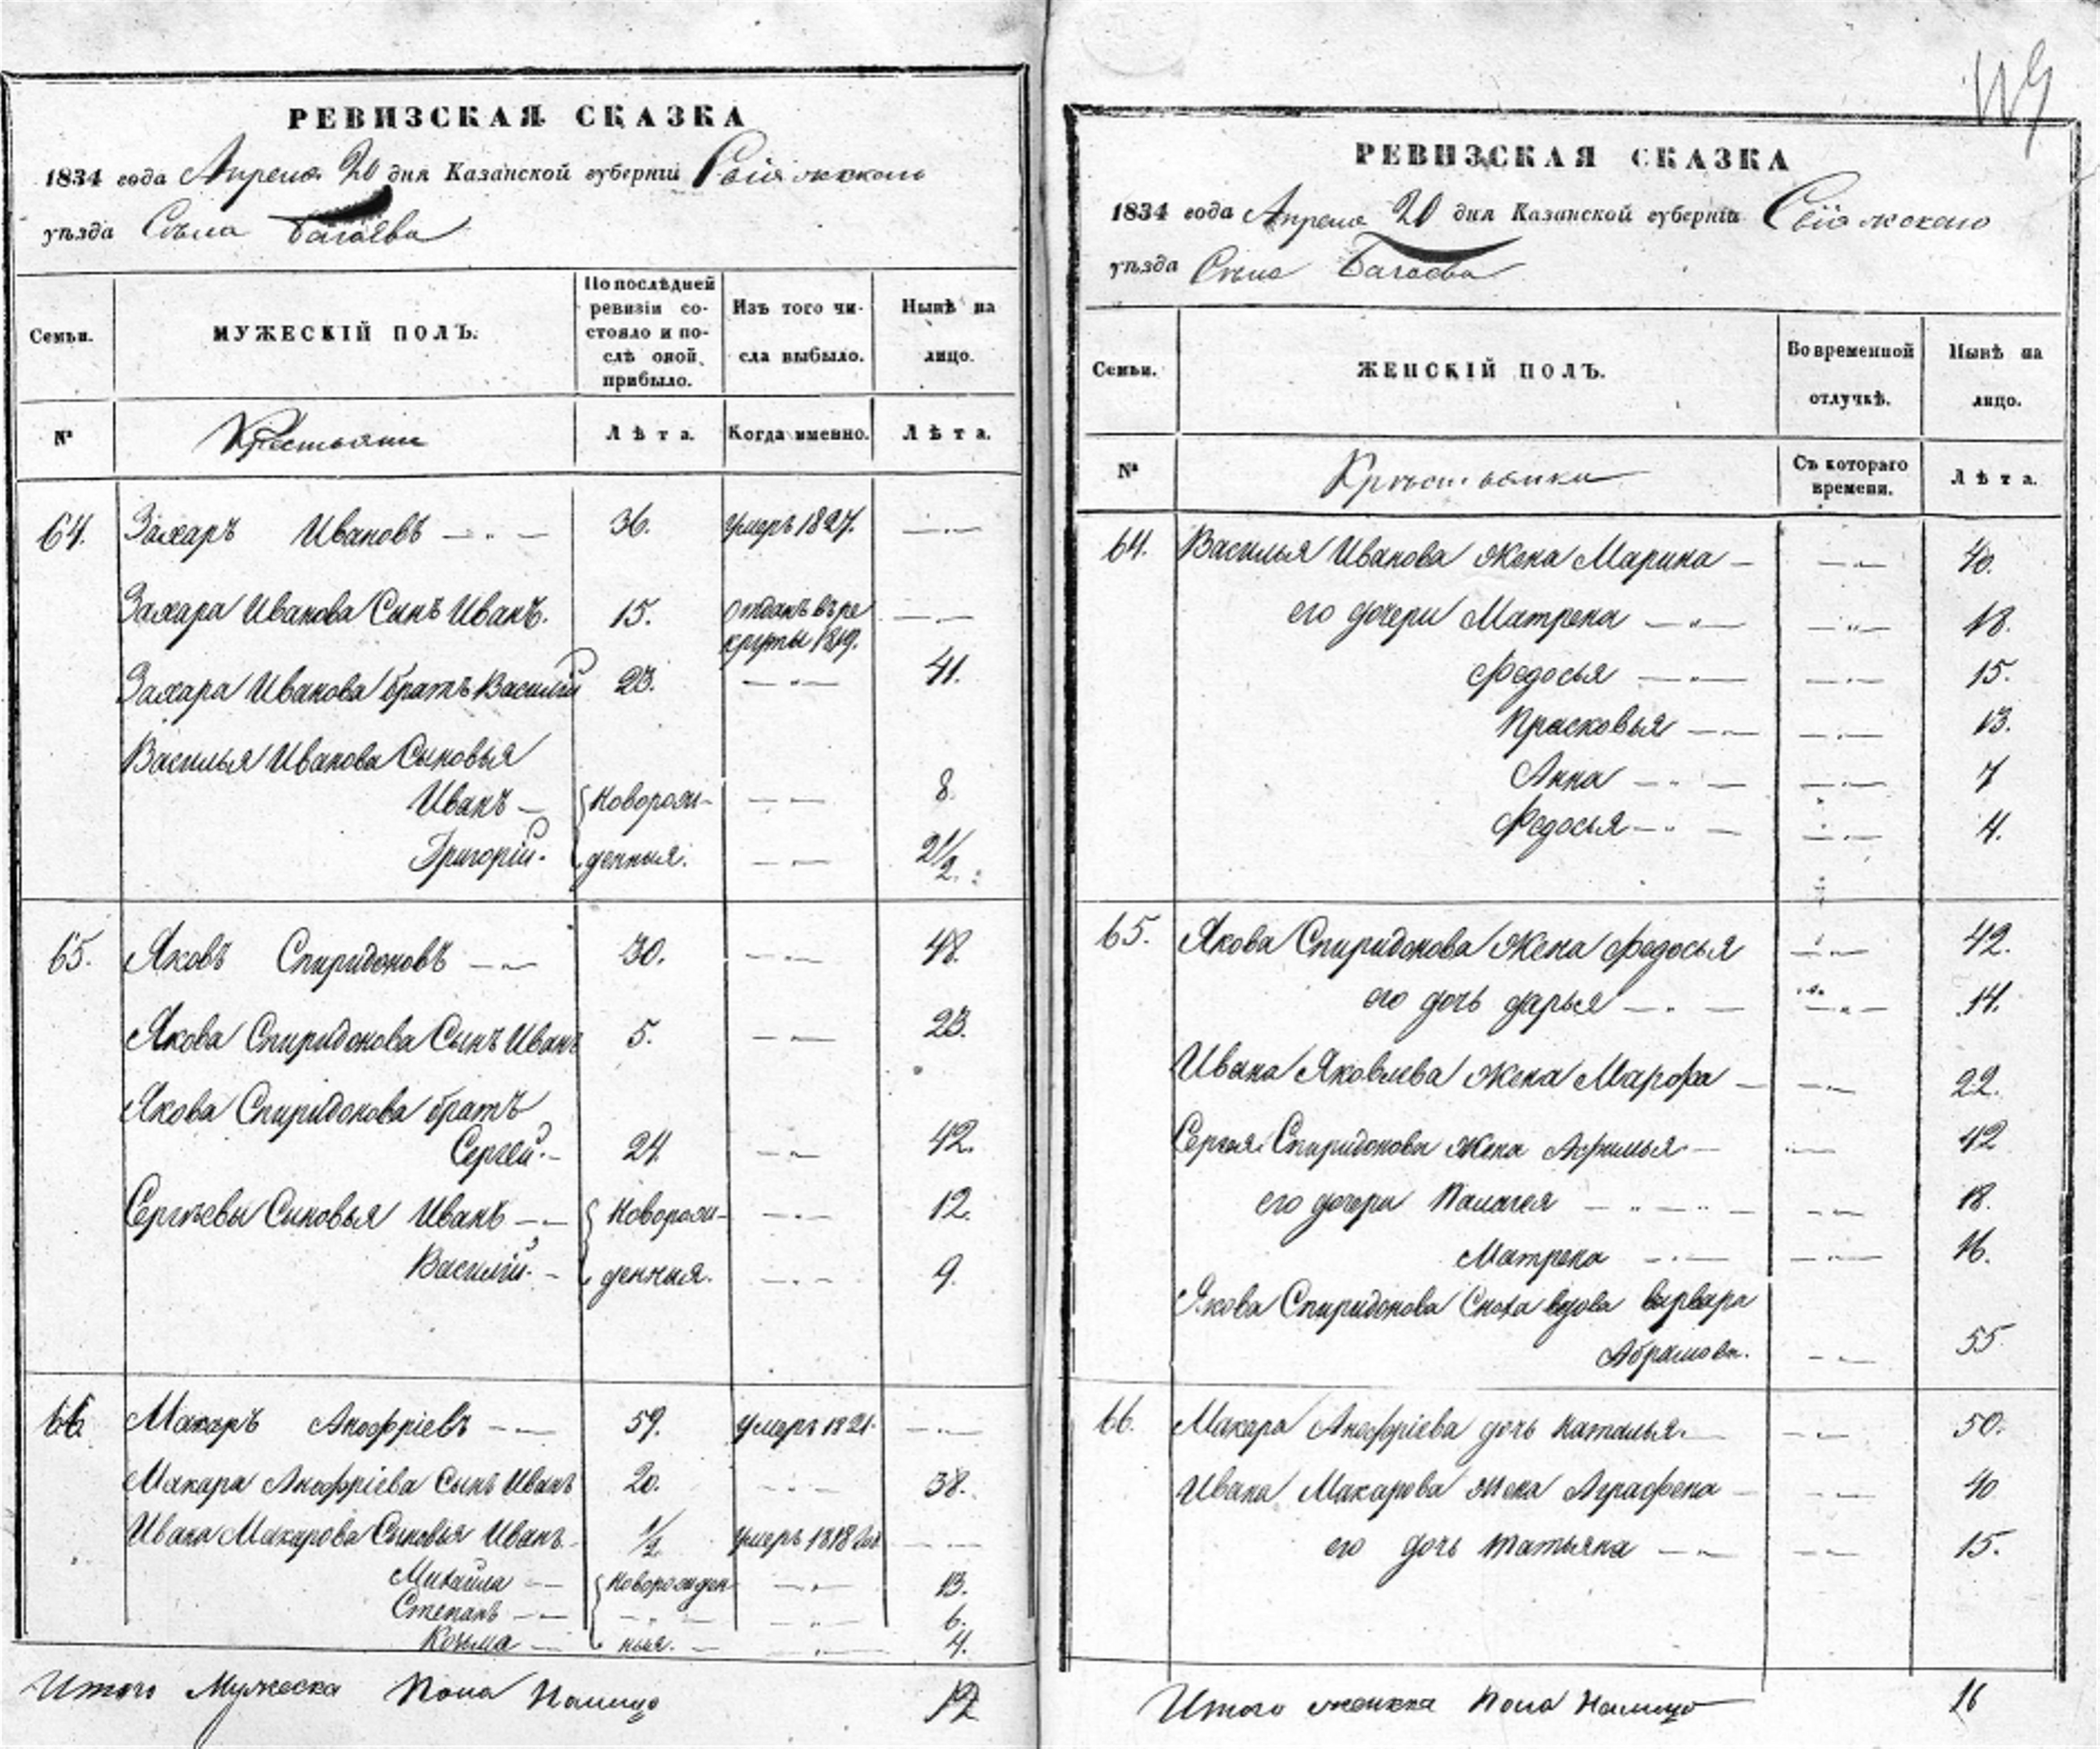 РЕВИЗСКАЯ СКАЗКА
1834 года Апреля 20 дня Казанской губерніи Свіяжскаго
уѣзда Сѣла Багаева
Семьи.
МУЖЕСКІЙ ПОЛЪ.
По послѣдней
ревизіи со-
стояло и по-
слѣ оной
прибыло.
Изъ того чи-
сла выбыло.
Нынѣ на
лицо.
№
Крестьяни
Лѣта.
Когда именно.
Лѣта.
64. Захаръ Ивановъ — 36. умеръ 1827. —
Захара Иванова Сынъ Иванъ. 15. Отданъ въ ре
круты 1819. —
Захара Иванова братъ Василій 23. — 41.
Василья Иванова Сыновья
Иванъ — Новорож- — 8.
Григорій. денныя. — 2 1/2.
65. Яковъ Спиридоновъ — 30. — 48.
Якова Спиридонова Сынъ Иванъ 5. — 23.
Якова Спиридонова братъ
Сергей. — 24. — 42.
Сергѣевы Сыновья Иванъ — Новорож- — 12.
Василій. — денныя. — 9.
66. Макаръ Анофріевъ — 59. умеръ 1821. —
Макара Анофріева Сынъ Иванъ 20. — 38.
Ивана Макарова Сыновья Иванъ 1/2 умеръ 1818 —
Михайла — Новорожден — 13.
Степанъ — — — 6.
Козьма — ныя. — 4.
Итого Мужеска Пола Налицо 12
РЕВИЗСКАЯ СКАЗКА
1834 года Апреля 20 дня Казанской губерніи Свіяжскаго
уѣзда Сѣла Багаева
Семьи.
ЖЕНСКІЙ ПОЛЪ.
Во временной
отлучкѣ.
Нынѣ на
лицо.
№
Крѣстьянки
Съ котораго
времени.
Лѣта.
64. Василья Иванова жена Марина — — 40.
его дочери Матрена — — 18.
Федосья — — 15.
Прасковья — — 13.
Анна — — 7
Федосья — — 4.
65. Якова Спиридонова жена Федосья — 42.
его дочь дарья — — 14.
Ивана Яковлева жена Марфа — — 22.
Сергея Спиридонова жена Афимья — — 42
его дочери Палагея — — 18.
Матрена — — 16.
Якова Спиридонова Сноха вдова варвара
Абрамова. — 55.
66. Макара Анофріева дочь наталья. — 50.
Ивана Макарова жена Аграфена — — 40
его дочь татьяна — — 15.
Итого женска Пола Налицо 16